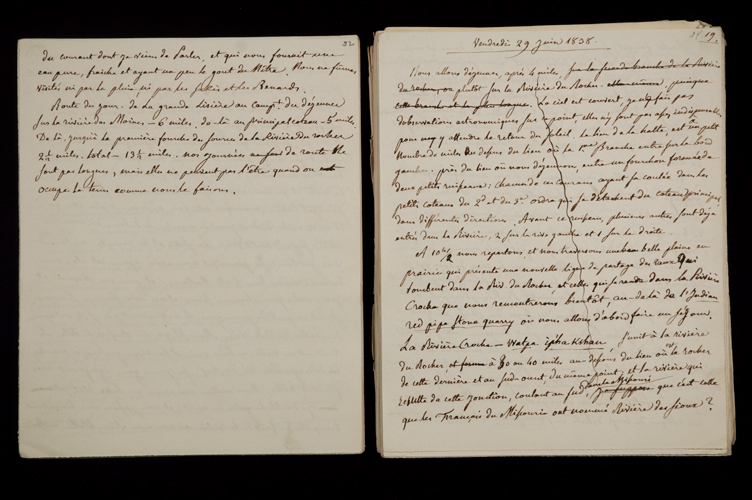 32
du courant dont je viens de parler, et qui nous fournit une
eau pure, fraiche et ayant un peu le gout de Nitre. Nous ne fumes
visités ni par la pluie, ni par les et les Renards.
Route du jour. de la grande lisière au Campt. du déjeuner
sur la rivière des Moines — 6 miles. de là au principal — 5 miles
De là, jusqu'à la première fourche des sources de la Rivière du rocher
2 1/4 miles. total — 13 1/4 miles. nos journées de route ne
sont pas longues, mais elles ne peuvent pas l'être quand on
occupe le tems comme nous le faisons.
19.
Vendredi 29 Juin 1838.
Nous allons déjeuner, après 4 miles, sur la grande branche de la Rivière
du rocher, ou plutôt sur la Rivière du Rocher puisque
cette branche est la plus longue. Le ciel est couvert, je n'y fais pas
d'observations astronomiques sur ce point, elles n'y sont pas assez indispensables
pour y attendre le retour du soleil. Le lieu de la halte, est à un petit
Nombre de miles du dessus du lieu où la 1ère Branche entre sur le bord
gauche. près du lieu où nous déjeunons, entre un fourchon formé de
deux petits ruisseaux; chacun de ces courans ayant sa coulée dans les
petits coteaux du 2d et du 3e ordre qui se détachent du coteau principal,
dans différentes directions. Avant ce ruisseau, plusieurs autres sont déjà
entrés dans la Rivière, 2 sur la rive gauche et 1 sur la droite.
A 10 1/2 nous repartons, et nous traversons une belle plaine en
prairie qui présente une nouvelle ligne de partage des eaux qui
tombent dans la Riv. du Rocher, et celles qui se rendent dans la Rivière
Croche que nous rencontrerons bientôt, au-delà de l'Indian
red pipe stone quarry où nous allons d'abord faire un séjour.
La Rivière Croche — Watpa ipàkshan, s'unit à la rivière
du Rocher à 30 ou 40 miles au-dessous du lieu où le rocher
de cette dernière et au sud-ouest, du même point; et la rivière qui
résulte de cette jonction, coulant au sud, dans le Missouri je suppose que c'est celle
que les Français du Missouri ont nommé Rivière des Sioux?